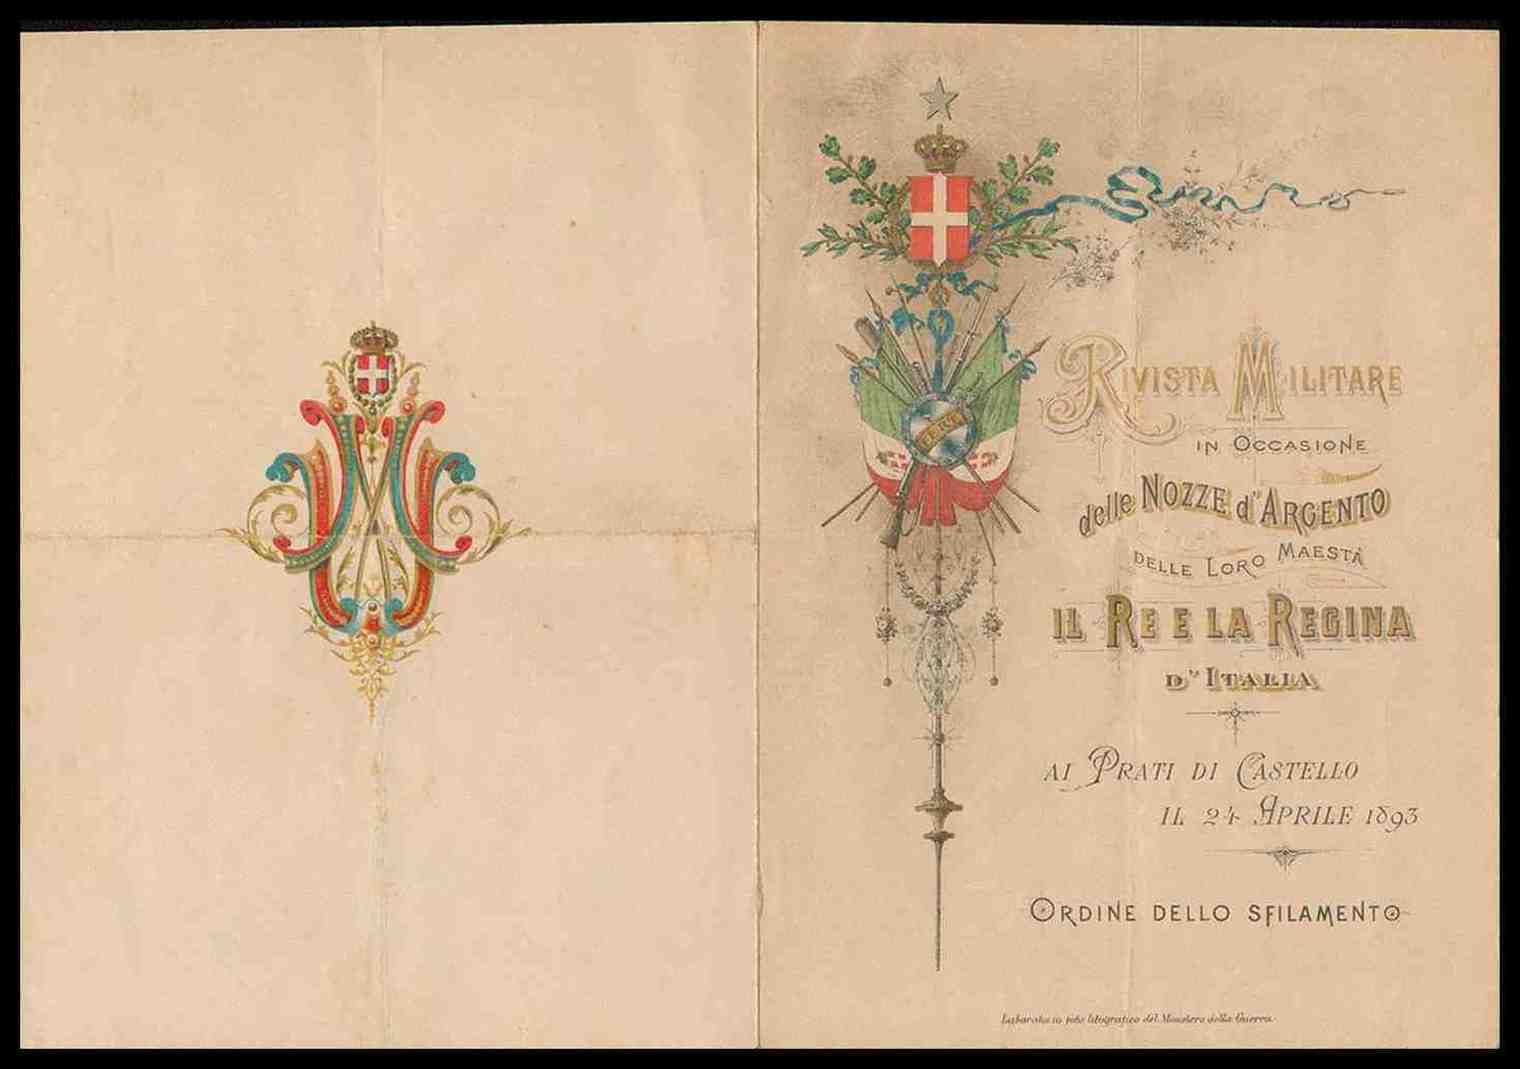 FERT
RIVISTA MILITARE
IN OCCASIONE
delle NOZZE d'ARGENTO
DELLE LORO MAESTÀ
IL RE E LA REGINA
D'ITALIA
AI PRATI DI CASTELLO
IL 24 APRILE 1893
ORDINE DELLO SFILAMENTO
Laboratorio foto litografico del Ministero della Guerra